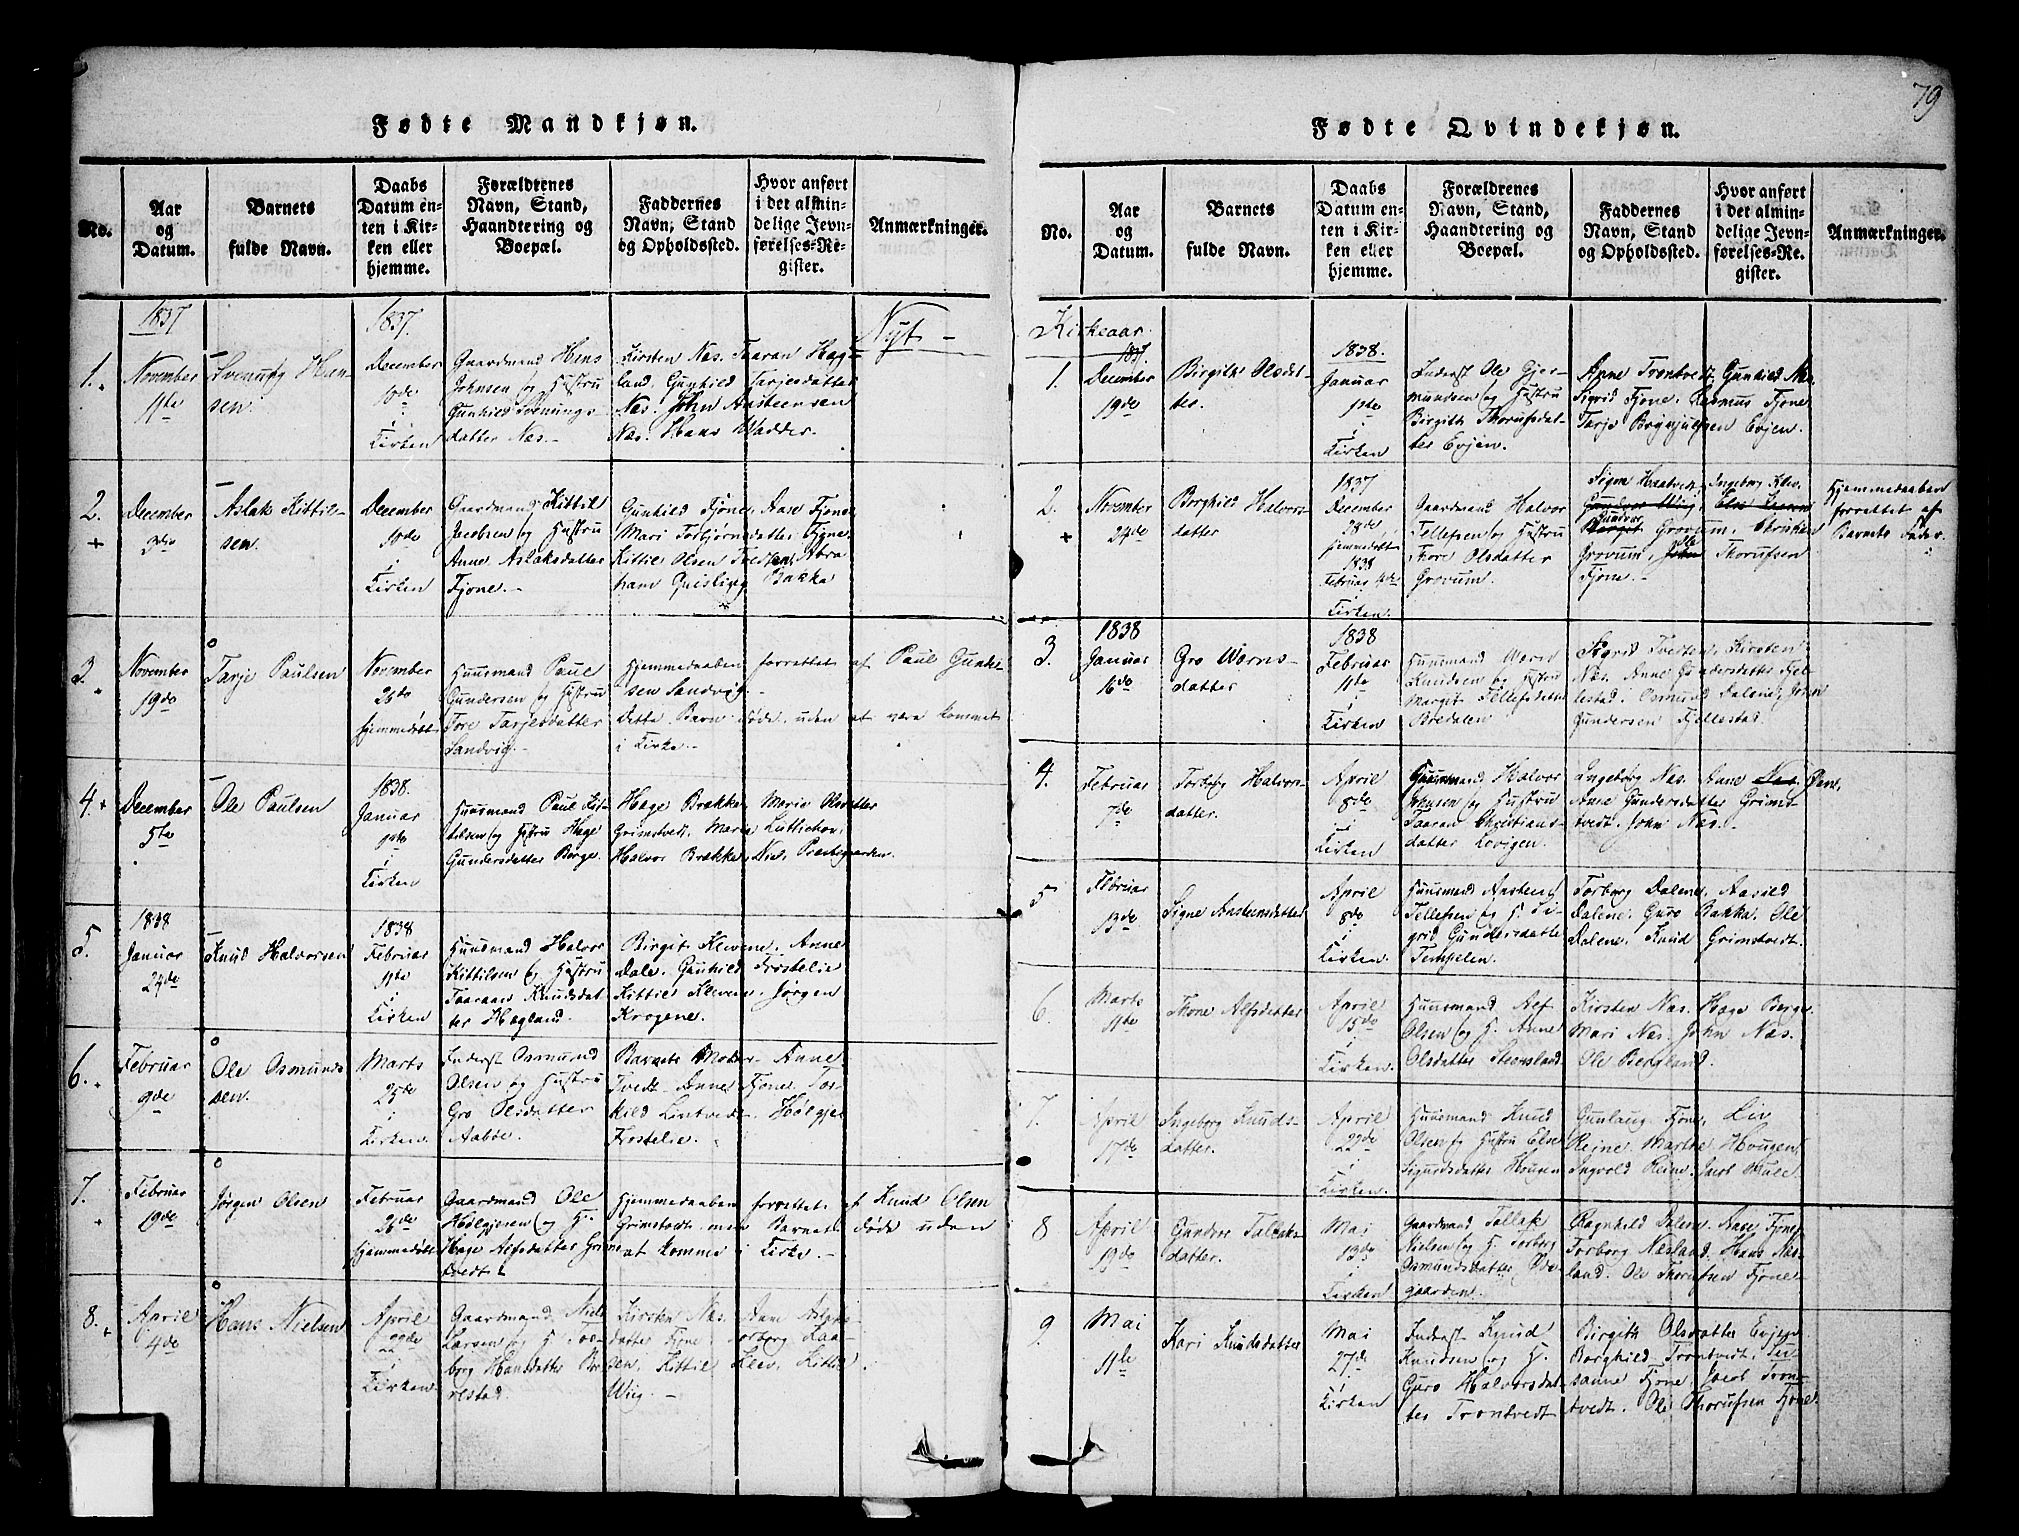 79
Fødte Mandkjøn.
No.
Aar
og
Datum.
Barnets
fulde Navn.
Daabs
Datum en-
ten i Kir-
ken eller
hjemme.
Forældrenes
Navn, Stand,
Haandtering og
Boepæl.
Faddernes
Navn, Stand
og Opholdssted.
Hvor anført
i det almin-
delige Jevn-
førelses-Re-
gister.
Anmærkninger.
Nyt
1.
1837
November
11te
Svenung Hen-
sen.
1837.
December
10de
i
Kirken
Gaardmand Hens
Johnsen og Hustru
Gunhild Svenungs-
datter Næs.
Kirsten Næs. Taaran Hag-
land. Gunhild Tarjesdatter
Næs. John Ansteensen
Næs. Hans Wadder.
2.
+
December
3die
Aslak Kittil-
sen.
December
10de
i
Kirken
Gaardmand Kittil
Jacobsen og Hustru
Anne Aslaksdatter
Fjone.
Gunhild Fjone. Aase Fjone
Mari Torbjørnsdatter Fjone.
Kittil Olsen Tvedten, Abra
ham Quisling Bakka
3.
November
19de
Tarje Paulsen
November
26de
hjemmedøbt
Huusmand Paul
Gundersen og Hustru
Tore Tarjesdatter
Sandvig.
Hjemmedaaben forrettet af Paul Gunder-
sen Sandvig.
Dette Barn døde, uden at være kommet
i Kirke.
4.
+
December
5te
Ole Paulsen
1838.
Januar
1ste
i
Kirken
Huusmand Paul Kit-
tilsen og Hustru Hæge
Gundersdatter Berge.
Hæge Brække, Maria Olsdatter
Grimstvedt, Maria Lüttichou,
Halvor Brække, Niels Præstegaarden.
5.
1838
Januar
24de
Knud Halvorsen
1838
Februar
11te
i
Kirken
Huusmand Halvor
Kittilsen og Hustru
Taaran Knudsdat-
ter Hagland.
Birgit Kleven. Anne
Dale. Gunhild Frostelie
Kittil Kleven. Jørgen
Krogene.
6.
Februar
9de
Ole Osmunds
sen.
Marts
25de
i
Kirken.
Inderst Osmund
Olsen og Hustru
Gro Olsdatter
Aabøe.
Barnets Moder. Anne
Tvedt. Anne Fjone. Tor-
kild Lintvedt. Hølgje
Frostelie.
7.
Februar
19de
Jørgen Olsen
Februar
26de
hjemmedøbt
Gaardmand Ole
Hølgjesen og H.
Hæge Alfsdatter Grim-
stvedt.
Hjemmedaaben forrettet af Knud Olsen
Grimstvedt men Barnet døde uden
at komme i Kirke.
8.
+
April
4de
Hans Nielsen
April
22de
i
Kirken.
Gaardmand Niels
Larsen og H. Tor-
borg Hansdatter
Kirsten Næs.
datter Fjone. Torborg
Kittil Klev. Kittil
Wiig.
Fødte Qvindekjøn.
No.
Aar
og
Datum.
Barnets
fulde Navn.
Daabs
Datum en-
ten i Kir-
ken eller
hjemme.
Forældrenes
Navn, Stand,
Haandtering og
Boepæl.
Faddernes
Navn, Stand
og Opholdssted.
Hvor anført
i det almin-
delige Jevn-
førelses-Re-
gister.
Anmærkninger.
Kirkeaar.
1.
1837.
December
19de
Birgith Olsdat-
ter.
1838.
Januar
1ste
i
Kirken
Inderst Ole Gjer-
mundsen og Hustru
Birgith Thorufsdat-
ter Evjen.
Anne Trontvedt, Gunhild Næs.
Sigrid Fjone. Rasmus Fjone
Tarje Brynjulfsen Evjen.
2.
+
November
24de
Borghild Halvors-
datter
1837
December
28de
hjemmedøbt
1838
Februar 4de
i
Kirken.
Gaardmand Halvor
Tellefsen og Hustru
Thore Olsdatter
Grovum.
Signe Haatvedt, Ingeborg Klev.
Gunvor
Grovum, Christian
Grovum, Thorufsen
Fjone.
Hjemmedaaben
forrettet af
Barnets Fader.
3.
1838
Januar
16de
Gro Wærns-
datter
1838
Februar
11te
i
Kirken
Huusmand Wærn
Knudsen og Hustru
Margit Tellefsdatter
Bredalen.
Sigrid Tvedten, Kirsten
Næs. Anne Gundersdatter Fjel-
lestad. Osmund Dalene, John
Gundersen Fjellestad.
4.
Februar
7de
Torborg Halvors-
datter.
April
8de
i
Kirken
Huusmand Halvor
Johnsen og Hustru
Taaran Christians-
datter Lovigen.
Ingeborg Næs. Anne
Anne Gundersdatter Grimst-
tvedt. John Næs.
5
Februar
13de
Signe Ansteensdatter
April
8de
i
Kirken
Huusmand Ansteen
Tellefsen og H. Si-
grid Gundersdatter
Tempelen.
Torborg Dalene. Aasild
Dalene. Guro Bakka. Ole
Dalene. Knud Grimstvedt.
6.
Marts
11te
Thone Alfsdatter
April
15de
i
Kirken.
Huusmand Alf
Olsen og H. Anne
Olsdatter Steensland
Kirsten Næs. Hæge Berge
Mari Næs. John Næs.
Ole Bergland.
7.
April
17de
Ingeborg Knuds-
datter.
April
22de
i
Kirken.
Huusmand Knud
Olsen og Hustru Else
Sigurdsdatter Hougen
Gunlaug Fjone, Liv
Reine Marthe Hougen
Ingvold Reine. Jacob Hule
8
April
19de
Gundvor Tallaks-
datter.
Mai
13de
i
Kirken
Gaardmand Tallak
Nielsen og H. Torborg
Osmundsdatter
gaarden.
Ragnhild Dalene. Aase Fjone
Torborg Næsland. Hans Næs-
land. Ole Thorufsen Fjone.
9.
Mai
11te
Kari Knudsdatter
Mai
27de
i
Kirken
Inderst Knud
Knudsen og H.
Guro Halvorsdat-
ter Trontvedt
Birgith Olsdatter Evjen
Borghild Trontvedt, Su-
sanne Fjone, Jacob Tron-
tvedt. Ole Thorufsen Fjone.